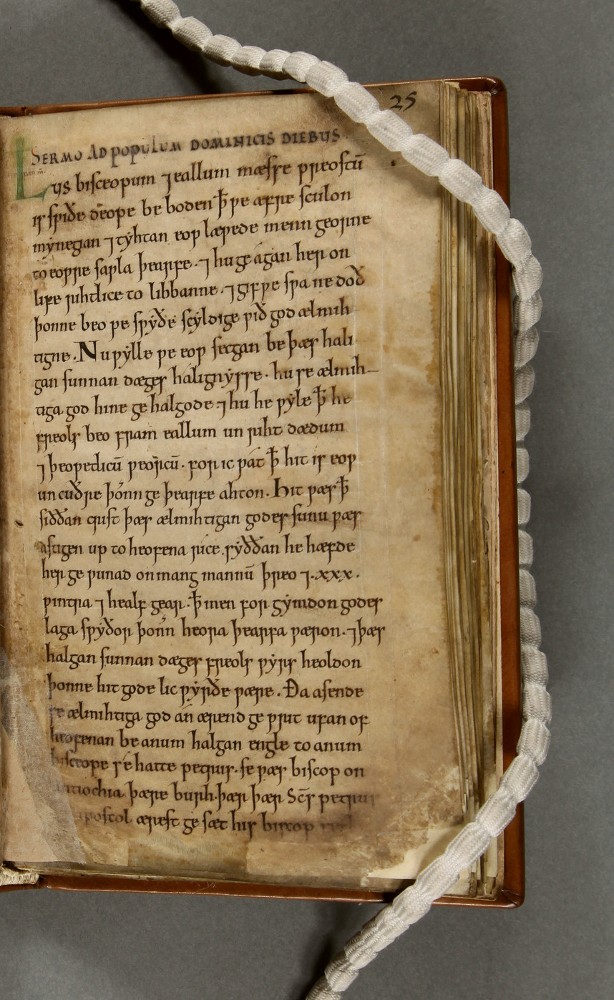 25
SERMO AD POPULUM DOMINICIS DIEBUS
Us bisceopum ⁊ eallum mæsse preostū
is swiðe deope be boden ꝥ we æfre sculon
mynegan ⁊ tyhtan eow læwede menn georne
to eowre sawla þearfe · ⁊ hu ge agan her on
life rihtlice to libbanne · ⁊ gif we swa ne doð
þonne beo we swyðe scyldige wið god ælmih
tigne · Nu wylle we eow secgan be þær hali
gan sunnan dæges halignysse · hu se ælmih
tiga god hine ge halgode ⁊ hu he wyle ꝥ he
freols beo fram eallum un riht dædum
⁊ þeowetlicū weorcū · for ic wat ꝥ hit is eow
un cuðre þoñ ge þearfe ahton · Hit wæs ꝥ
siððan crist þæs ælmihtigan godes sunu wæs
astigen up to heofena rice · syððan he hæfde
her ge wunad onmang mannū þreo ⁊ .xxx.
wintra ⁊ healf gear · ꝥ men for gymdon godes
laga swyðor þonñ heora þearfa wæron · ⁊ þæs
halgan sunnan dæges freols wyrs heoldon
þonne hit gode lic wyrðe wære · Ða asende
se ælmihtiga god an ærend ge writ ufan of
heofenan be anum halgan engle to anum
bisceope se hatte petrus · se wæs biscop on
antiochia þære burh · þær þær Scs petrus
apostol ærest ge sæt his biscop